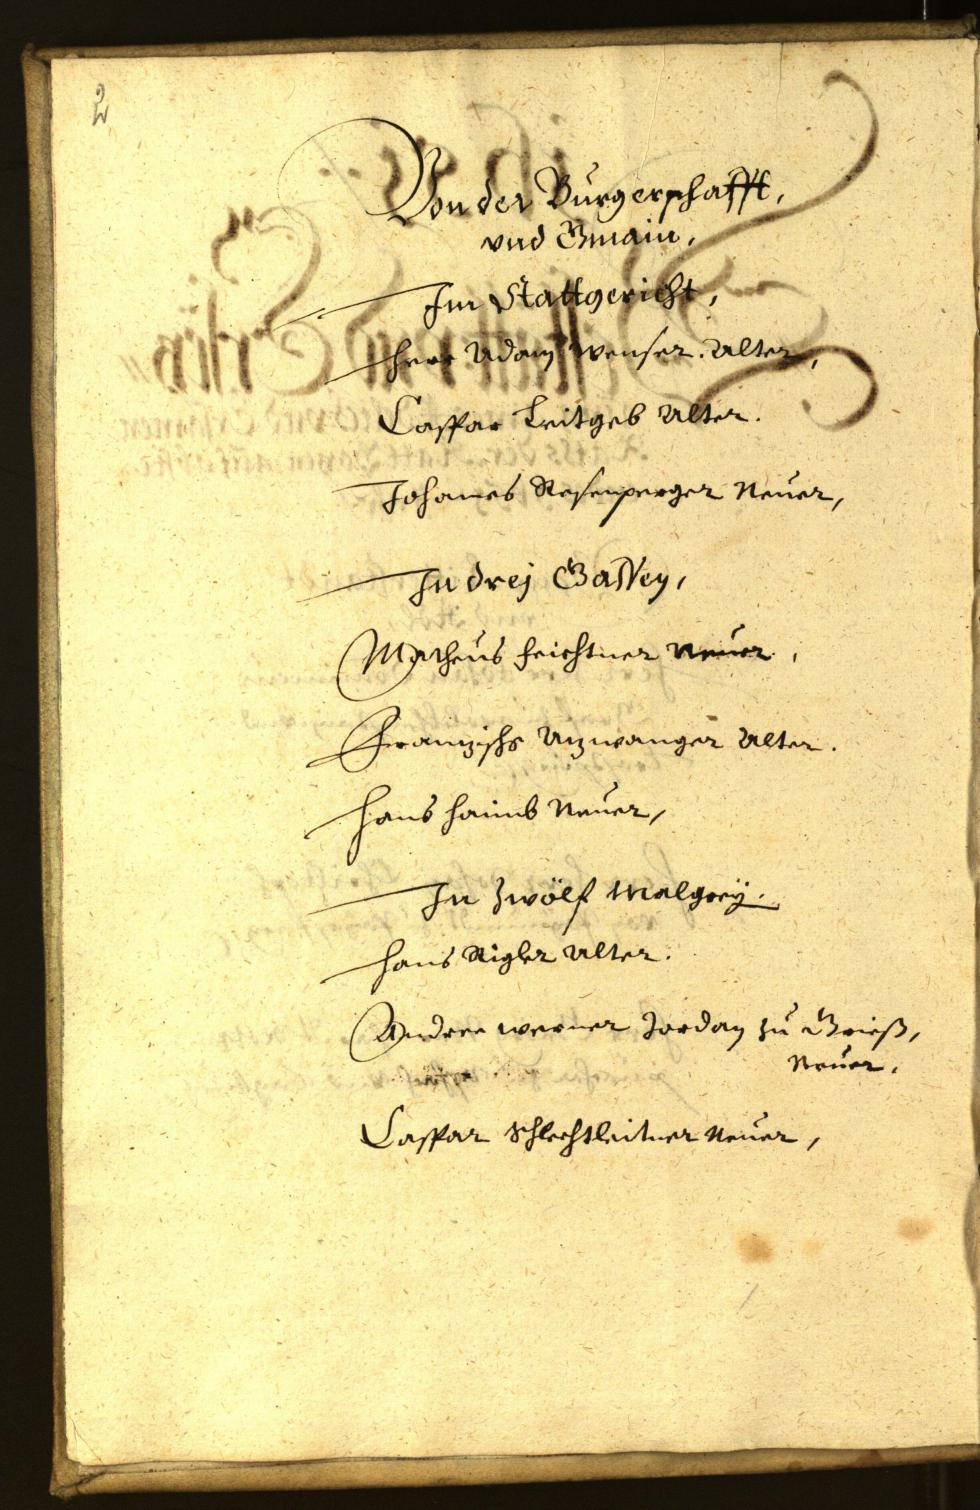 2
Von der Burgerschafft,
vnd Gmain,
Im Stattgericht,
Herr Adam Wenser. Alter,
Caspar Leitgeb Alter.
Johannes Rosenperger Neuer,
In drej Gassen,
Matheus Feichtner Neuer,
Franzisch Anzwanger Alter.
Hans Haimb Neuer,
In Zwölf Malgrej.
Hans Rigler Alter.
Andree Werner Jordan zu Grieß,
Neuer.
Caspar Schlechtleitner Neuer,